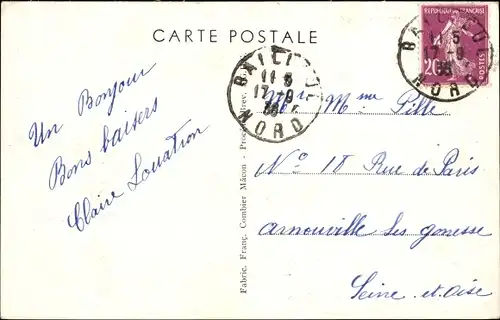 CARTE POSTALE
Un Bonjour
Bons baisers
Claire
Fabric. Franç. Combier Mâcon -
BAILLEUL
11 5
17-9
35
NORD
REPUBLIQUE FRANÇAISE
20
POSTES
BAILLEUL
11 5
17-9
35
NORD
Mr Mme Pille
N° 18 Rue de Paris
Arnouville les gonesse
Seine et oise